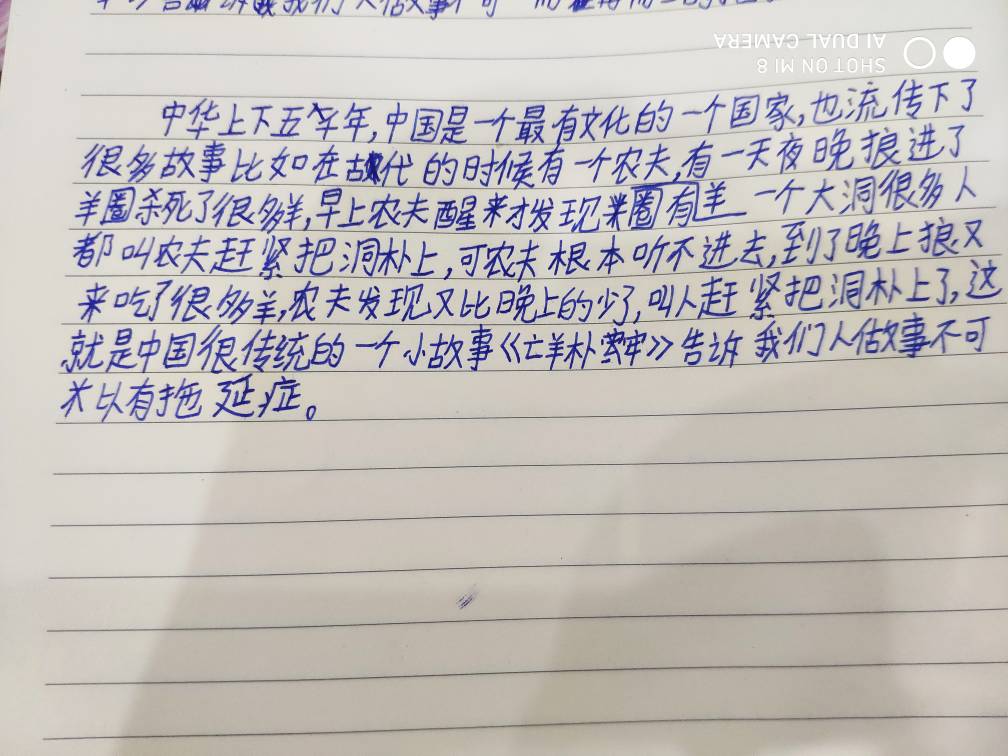 我们人做事不可
SHOT ON MI 8
AI DUAL CAMERA
中华上下五千年,中国是一个最有文化的一个国家,也流传下了
很多故事比如在古代的时候有一个农夫,有一天夜晚狼进了
羊圈杀死了很多羊,早上农夫醒来才发现羊圈有 一个大洞很多人
都叫农夫赶紧把洞朴上,可农夫根本听不进去,到了晚上狼又
来吃了很多羊,农夫发现又比晚上的少了,叫人赶紧把洞朴上了,这
就是中国很传统的一个小故事《亡羊朴牢》告诉我们人做事不可
以有拖延症。